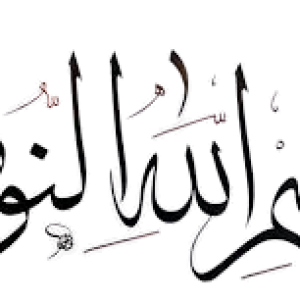 مِ اللهِ النُّو